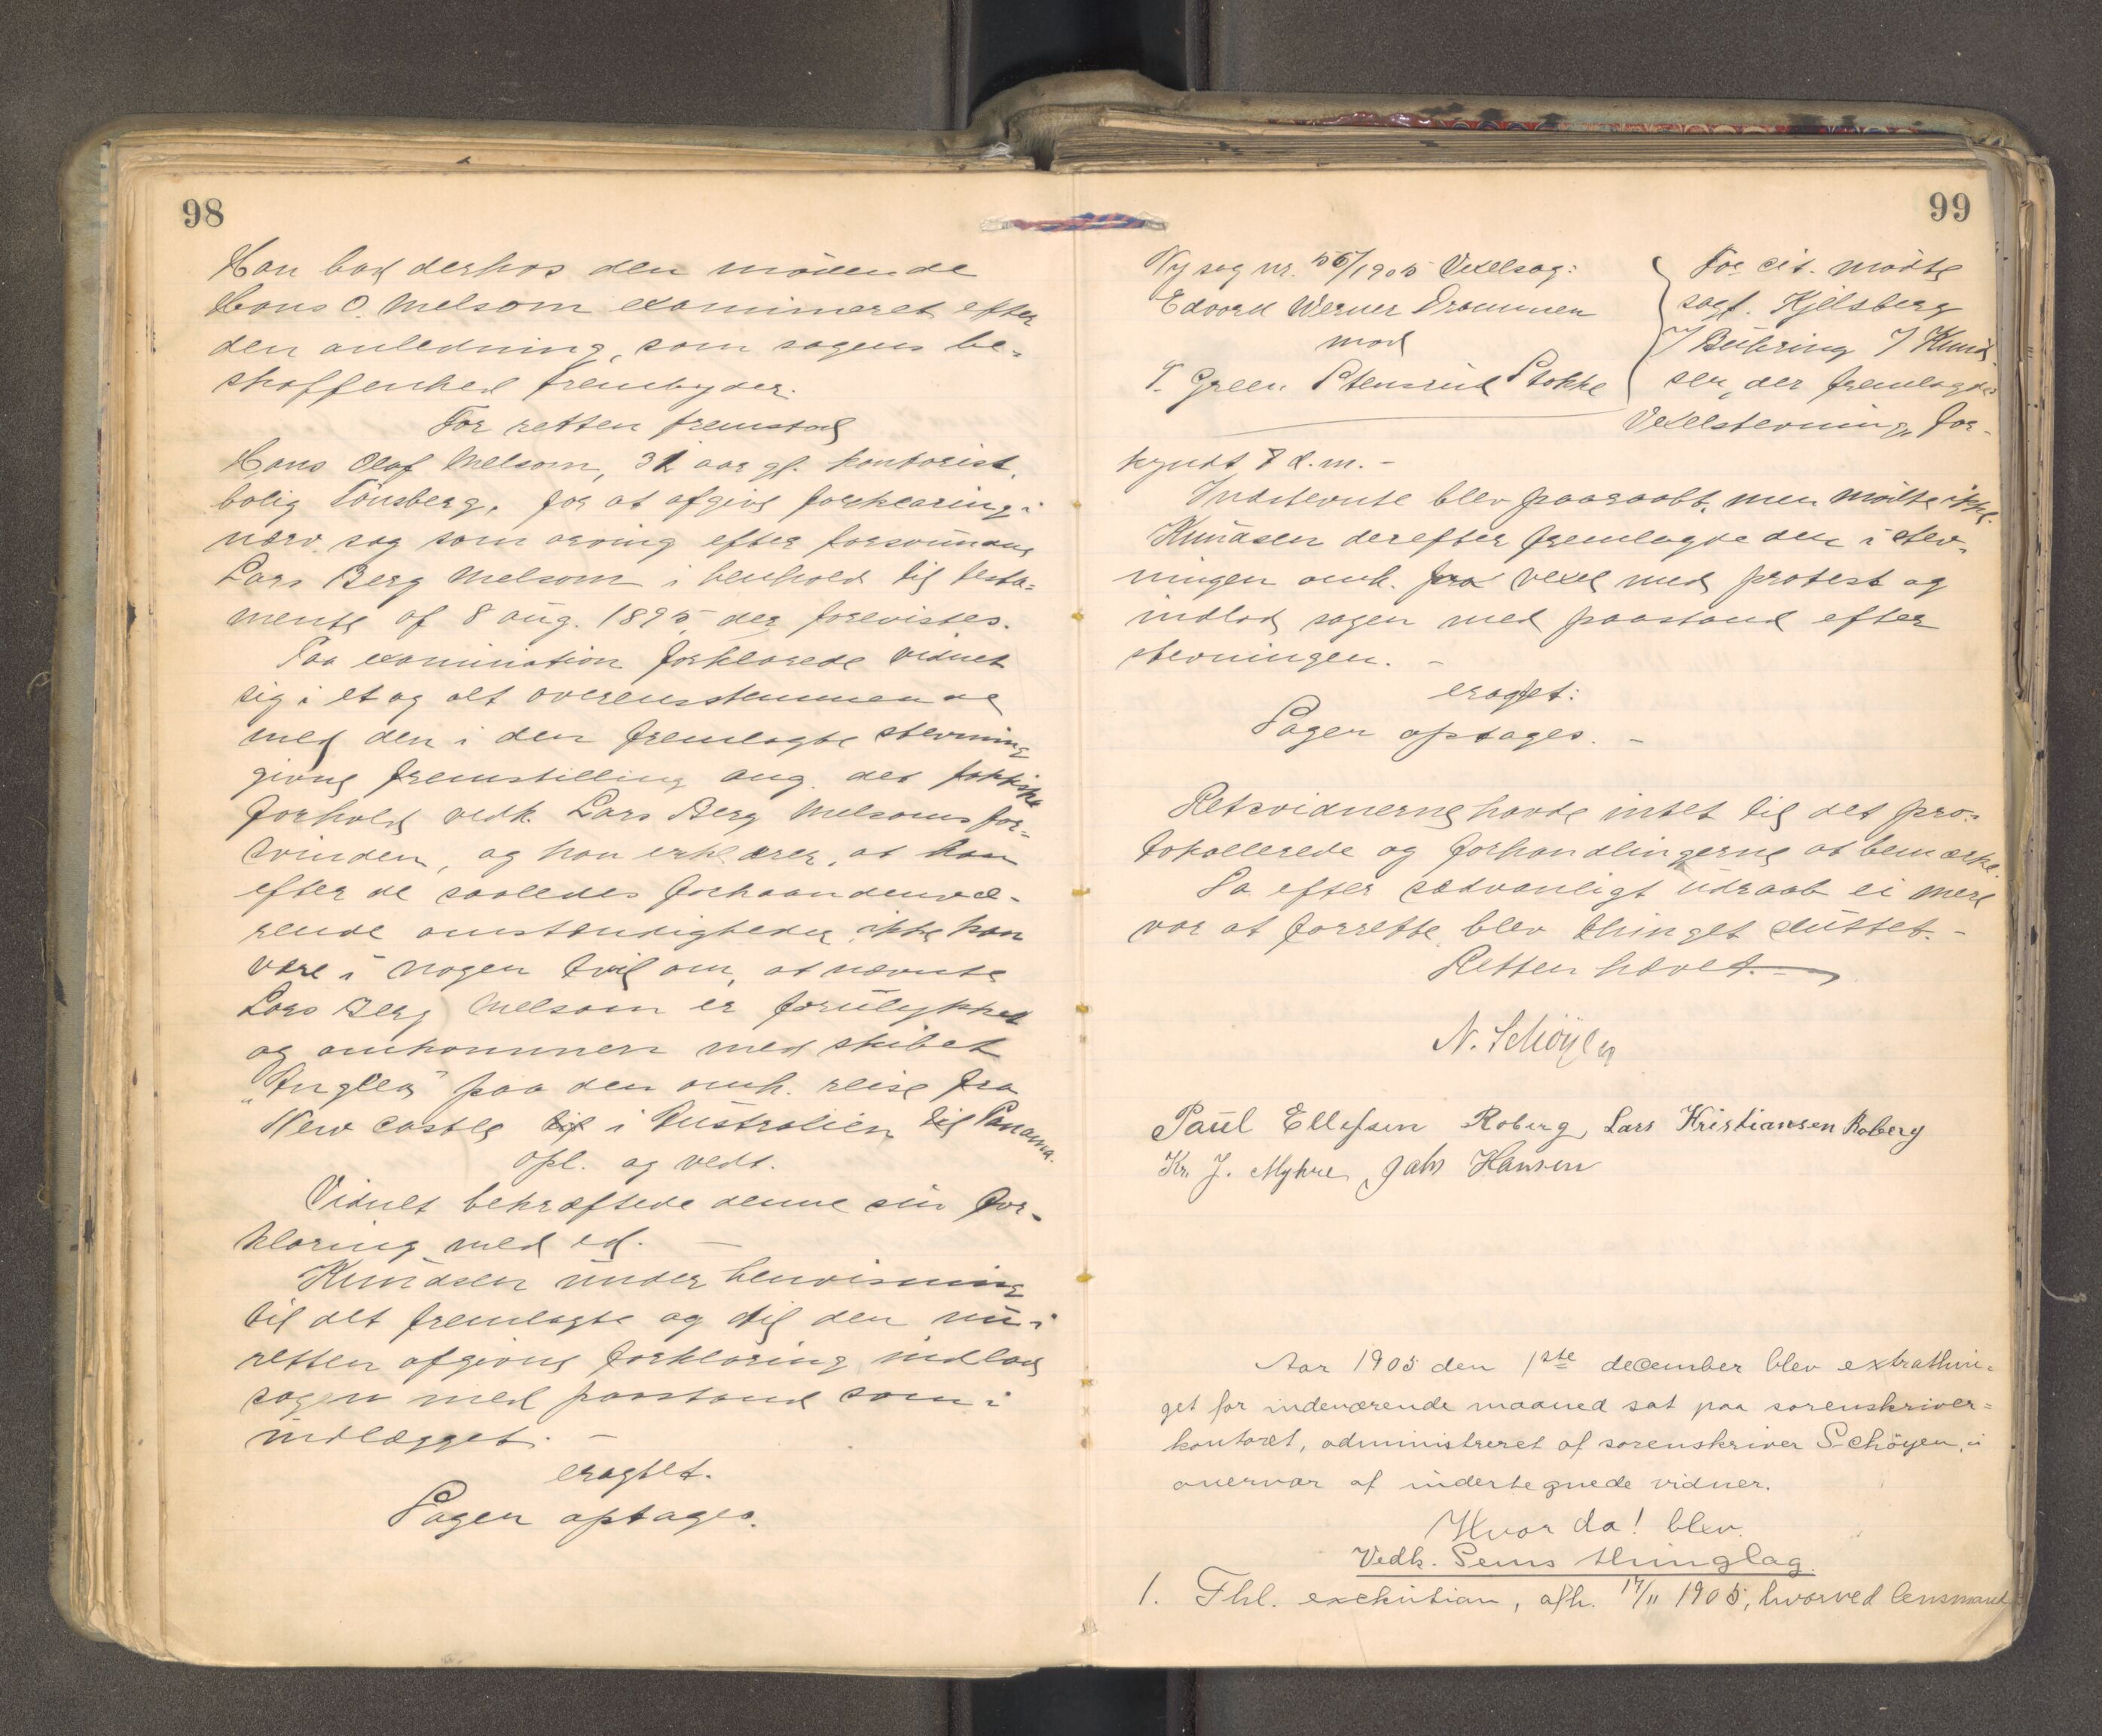 98
Han bad derhos den mødende
Hans O. Melsom examineret efter
den anledning, som sagens be-
skaffenhed frembyder.
For retten fremstod
Hans Olaf Melsom, 31 aar gl. kontorist,
bolig Tönsberg, for at afgive forklaring i
nærv. sag som arving efter forsvundne
Lars Berg Melsom i henhold til testa-
mente af 8 aug. 1895, der forevistes.
Paa examination forklarede vidnet
sig i et og alt overensstemmende
med den i den fremlagte stevning
givne fremstilling ang. det faktiske
forhold vedk. Lars Berg Melsoms for-
svinden, og han erklærer, at han
efter de saaledes forhaandenvæ-
rende omstændigheder ikke kan
være i nogen tvil om, at nævnte
Lars Berg Melsom er forulykket
og omkommen med skibet
"Anglea" paa den omh. reise fra
New castle til i Australien til Panama.
Opl. og vedt.
Vidnet bekræftede denne sin for-
klaring med ed. —
Knudsen under henvisning
til det fremlagte og til den nu i
retten afgivne forklaring indlod
sagen med paastand som i
indlægget. —
eragtet.
Sagen optages.
99
Ny sag nr. 56/1905 Vexelsag:
Edvard Werner Drammen
mod
T. Green Stensrud Stokke
For cit. mødte
sagf. Kjelsberg
v/ Bühring v/ Knud-
sen, der fremlagde
Vexelstevning, for-
kyndt 7 d.m. -
Indstevnte blev paaraabt, men mødte ikke.
Knudsen derefter fremlagde den i stev-
ningen omh. pra vexel med protest og
indlod sagen med paastand efter
stevningen. -
eragtet:
Sagen optages. -
Retsvidnerne havde intet til det pro-
tokollerede og forhandlingerne at bemærke.
Da efter sædvanligt udraab ei mere
var at forrette, blev thinget sluttet. -
Retten hævet. —
N. Schöyen
Paul Ellefsen Roberg, Lars Kristiansen Roberg
Kr. J. Myhre, Jahs Hansen
Aar 1905 den 1ste december blev extrathin-
get for indeværende maaned sat paa sorenskriver-
kontoret, administreret af sorenskriver Schöyen, i
overvær af undertegnede vidner.
Hvor da! blev.
Vedk. Sems thinglag.
1. Thl. exekution, afh. 17/11 1905, hvorved lensmand